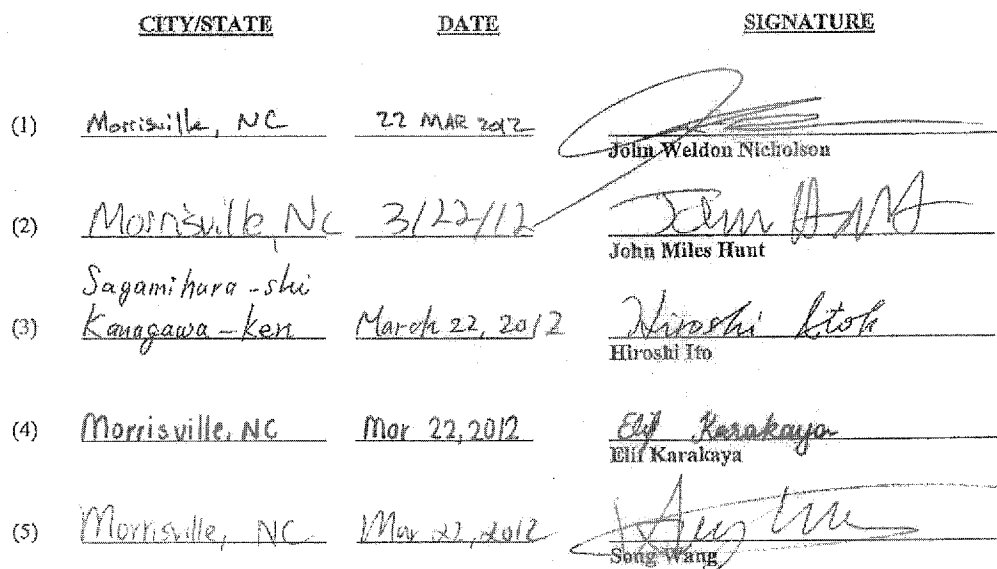 CITY/STATE DATE SIGNATURE
(1) Morrisville, NC 22 MAR 2012
John Weldon Nicholson
(2) Morrisville, NC 3/22/12 John Hunt
John Miles Hunt
Sagamihara-shi
(3) Kanagawa-ken March 22, 2012 Hiroshi Itoh
Hiroshi Ito
(4) Morrisville, NC Mar 22, 2012 Elif Karakaya
Elif Karakaya
(5) Morrisville, NC Mar 22, 2012
Song Wang